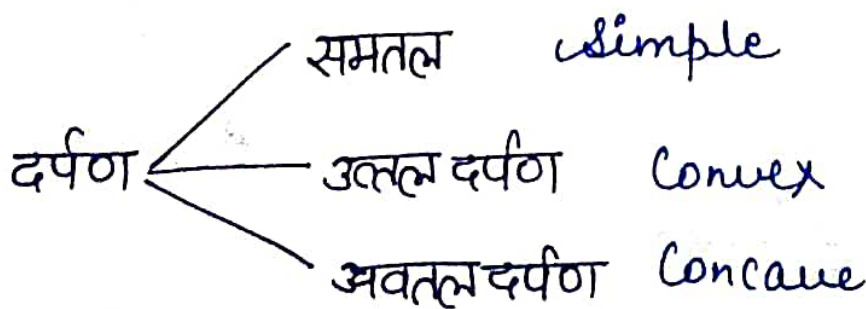 समतल simple
दर्पण
उत्तल दर्पण Convex
अवतल दर्पण Concave